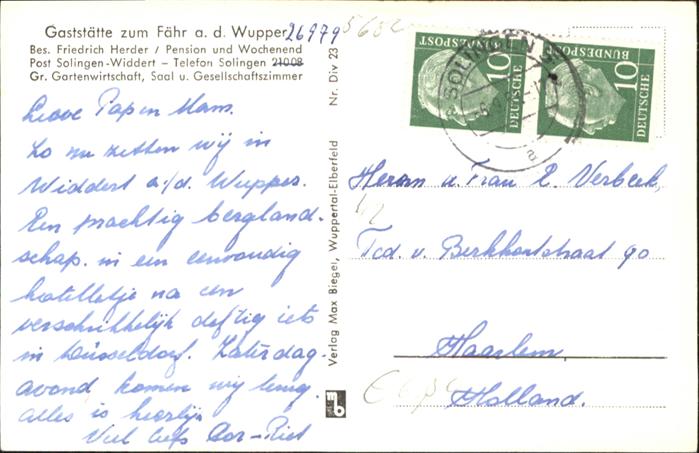 Gaststätte zum Fähr a. d. Wupper
Bes. Friedrich Herder / Pension und Wochenend
Post Solingen-Widdert – Telefon Solingen 21008
Gr. Gartenwirtschaft, Saal u. Gesellschaftszimmer
26979
5682
Lieve Pap en Mam.
Zo nu zitten wij in
Widdert a/d. Wupper.
Een prachtig bergland-
schap. in een eenvoudig
hotelletje na een
verschrikkelijk deftig iets
in Düsseldorf. Zaterdag-
avond komen wij terug.
alles is heerlijk
Viel liefs Cor-Riet
Nr. Div 23
Verlag Max Biegel, Wuppertal-Elberfeld
mb
DEUTSCHE
BUNDESPOST
10
DEUTSCHE
BUNDESPOST
10
SOLINGEN
a
Herrn u. Frau E. Verbeek
Ted. v. Berkhoutstraat 90
Haarlem
Holland.